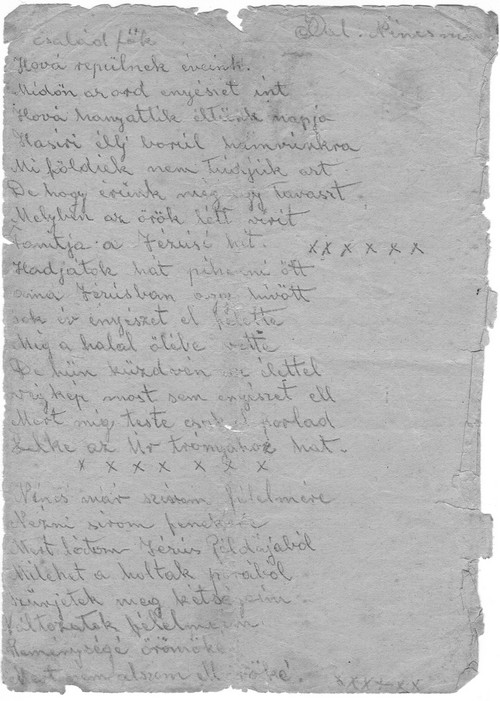 család fők Dal. Nincs
Hová repülnek éveink.
Midőn az ord enyészet int
Hová hanyatlik éltünk napja
Ha síri éjj borúl hamvunkra
Mi földiek nem tudjuk azt
De hogy érünk még egy tavaszt
Melyben az örök lett virít
Tanitja a Jézúsi hit. xx x x x x
Hadjátok hát pihenni őtt
Jézúsban hívőtt
sok év enyészet el felette
Míg a halál ölébe vette
De hűn küzdvén élettel
végkép most sem enyészet ell
Mert míg teste porlad
Lelke az Úr trónyához hat.
x x x x x x x
Nincs már szívem félelmére
Nézni sírom fenekére
Mert látom Jézús Példájából
Mi léhet a holtak porából
szünyétek meg kétségeim.
Változatok félelmeim
Reménységé örömöké
Mert nem alszom ell örőké. xxxx xx